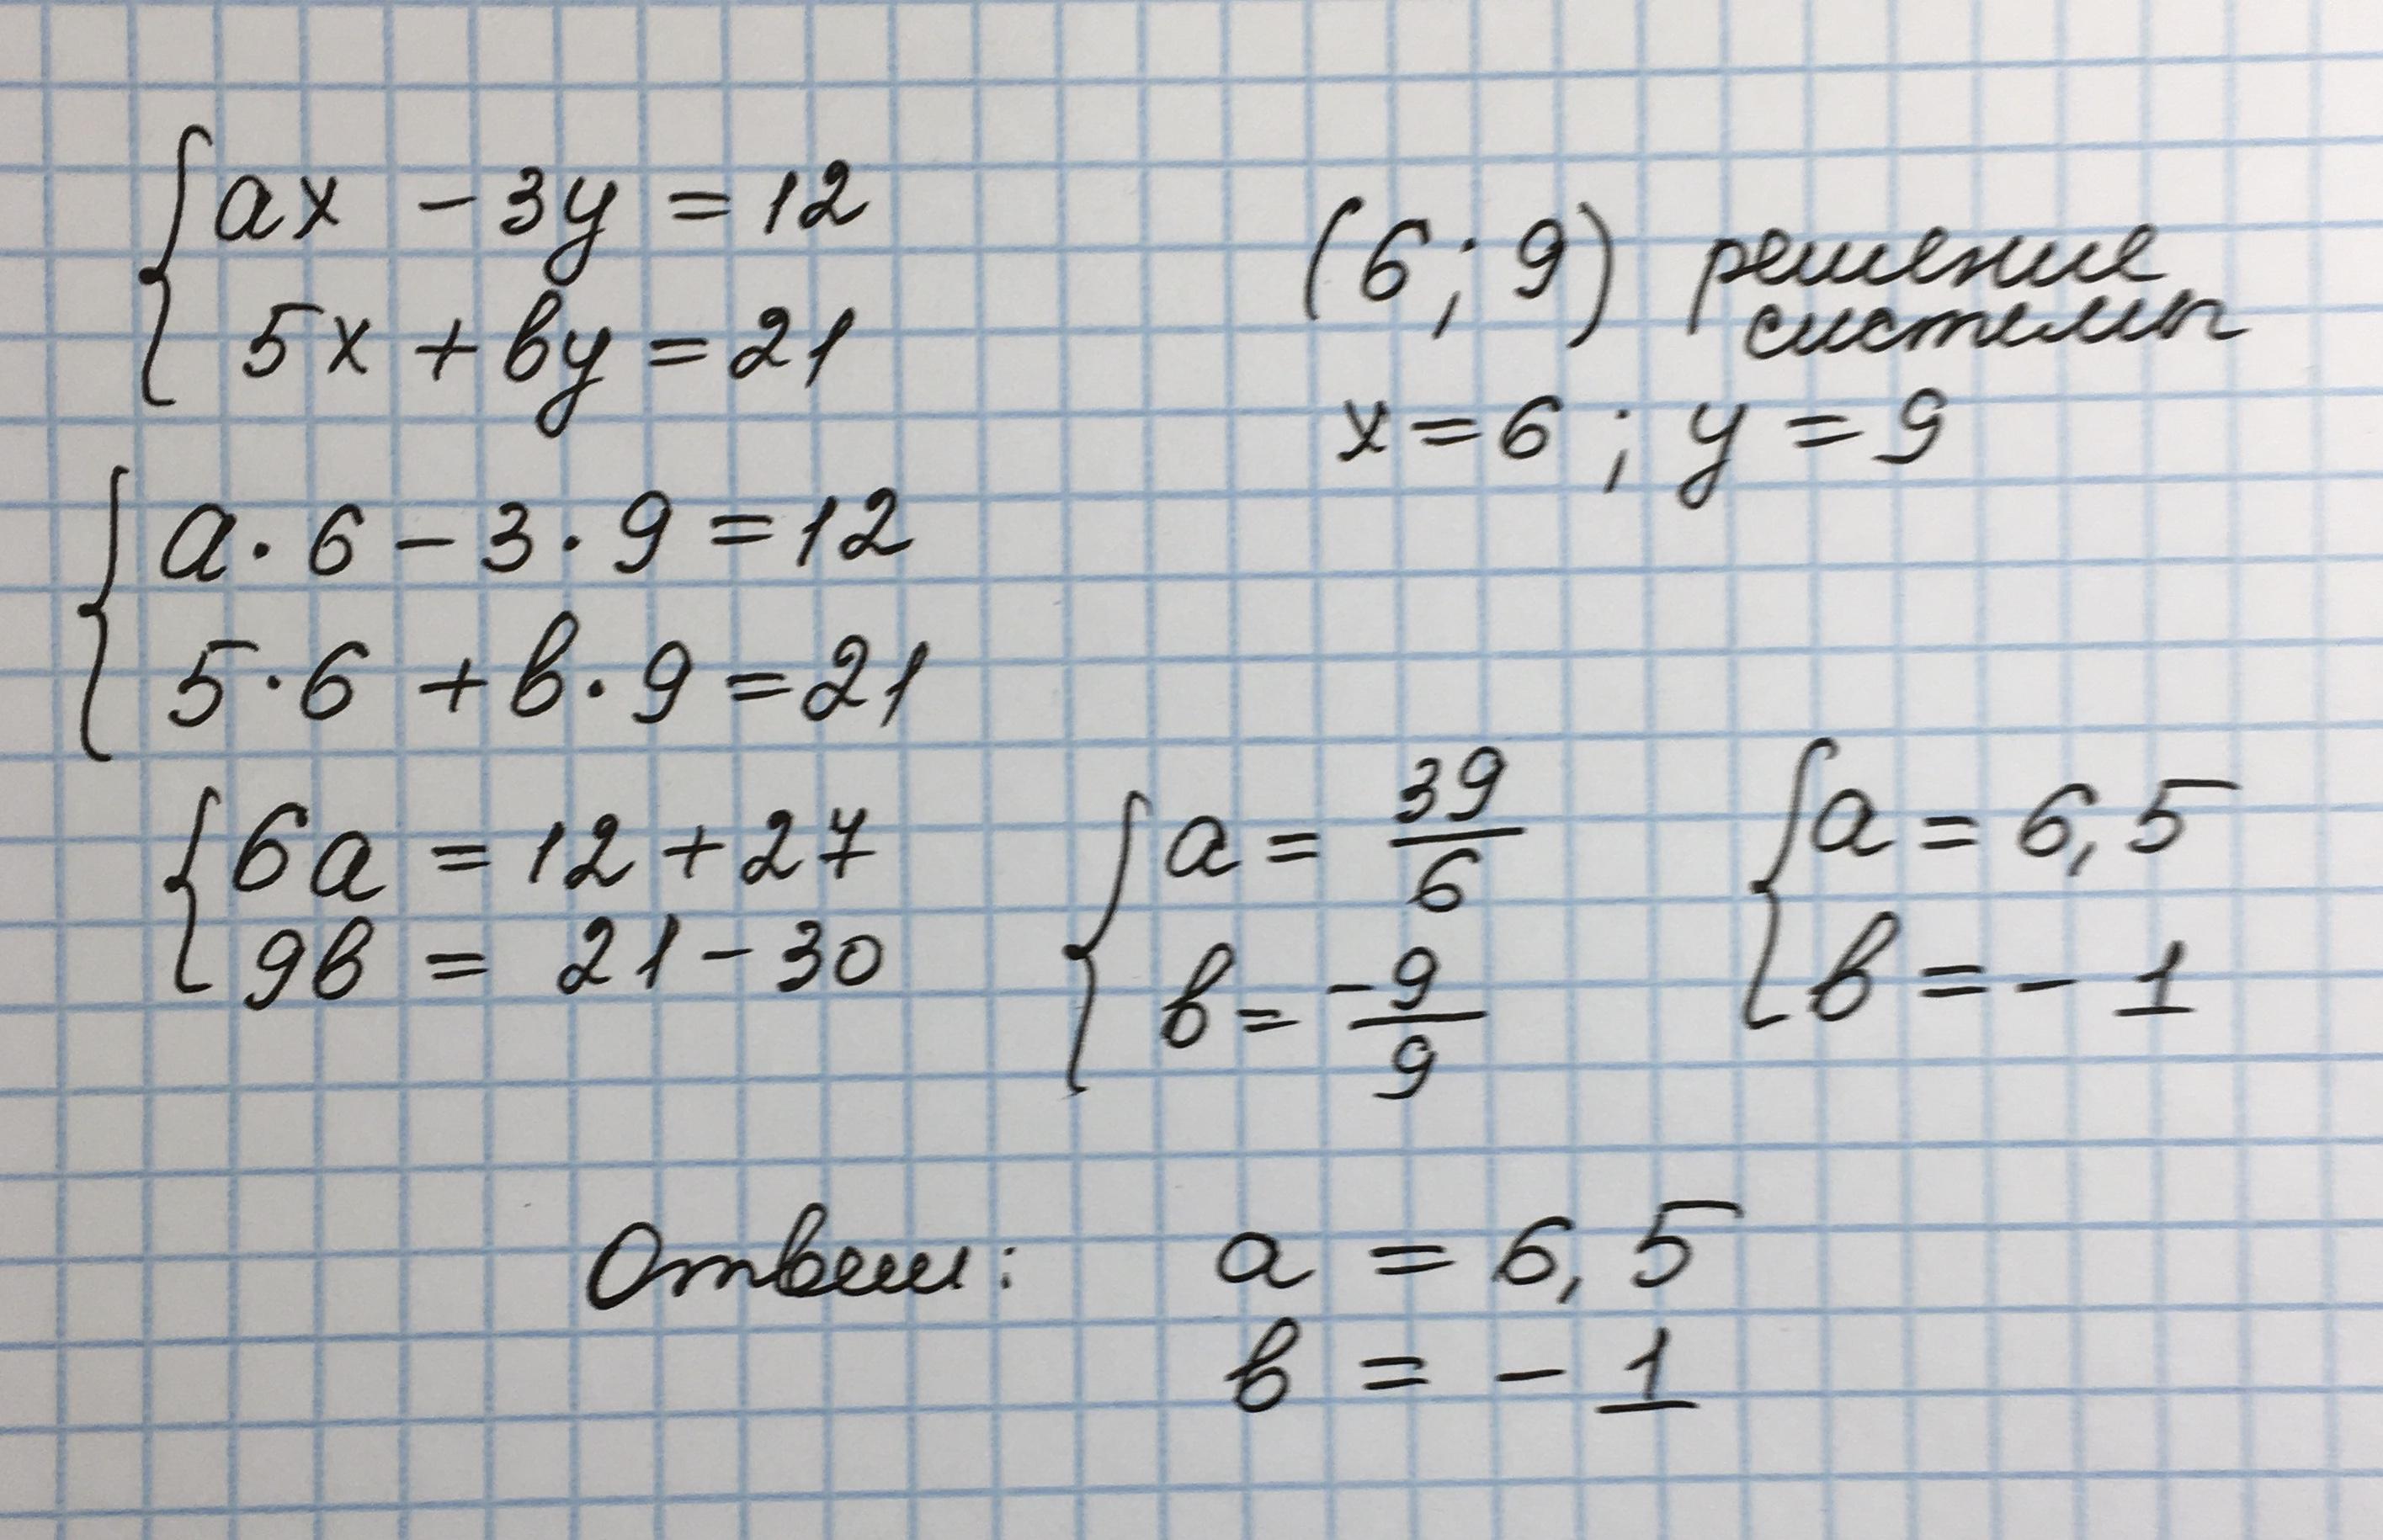 ax - 3y = 12
5x + by = 21
(6; 9) решение
системы
x = 6; y = 9
a · 6 - 3 · 9 = 12
5 · 6 + b · 9 = 21
6a = 12 + 27
9b = 21 - 30
a = 39/6
b = -9/9
a = 6,5
b = - 1
Ответ: a = 6,5
b = - 1